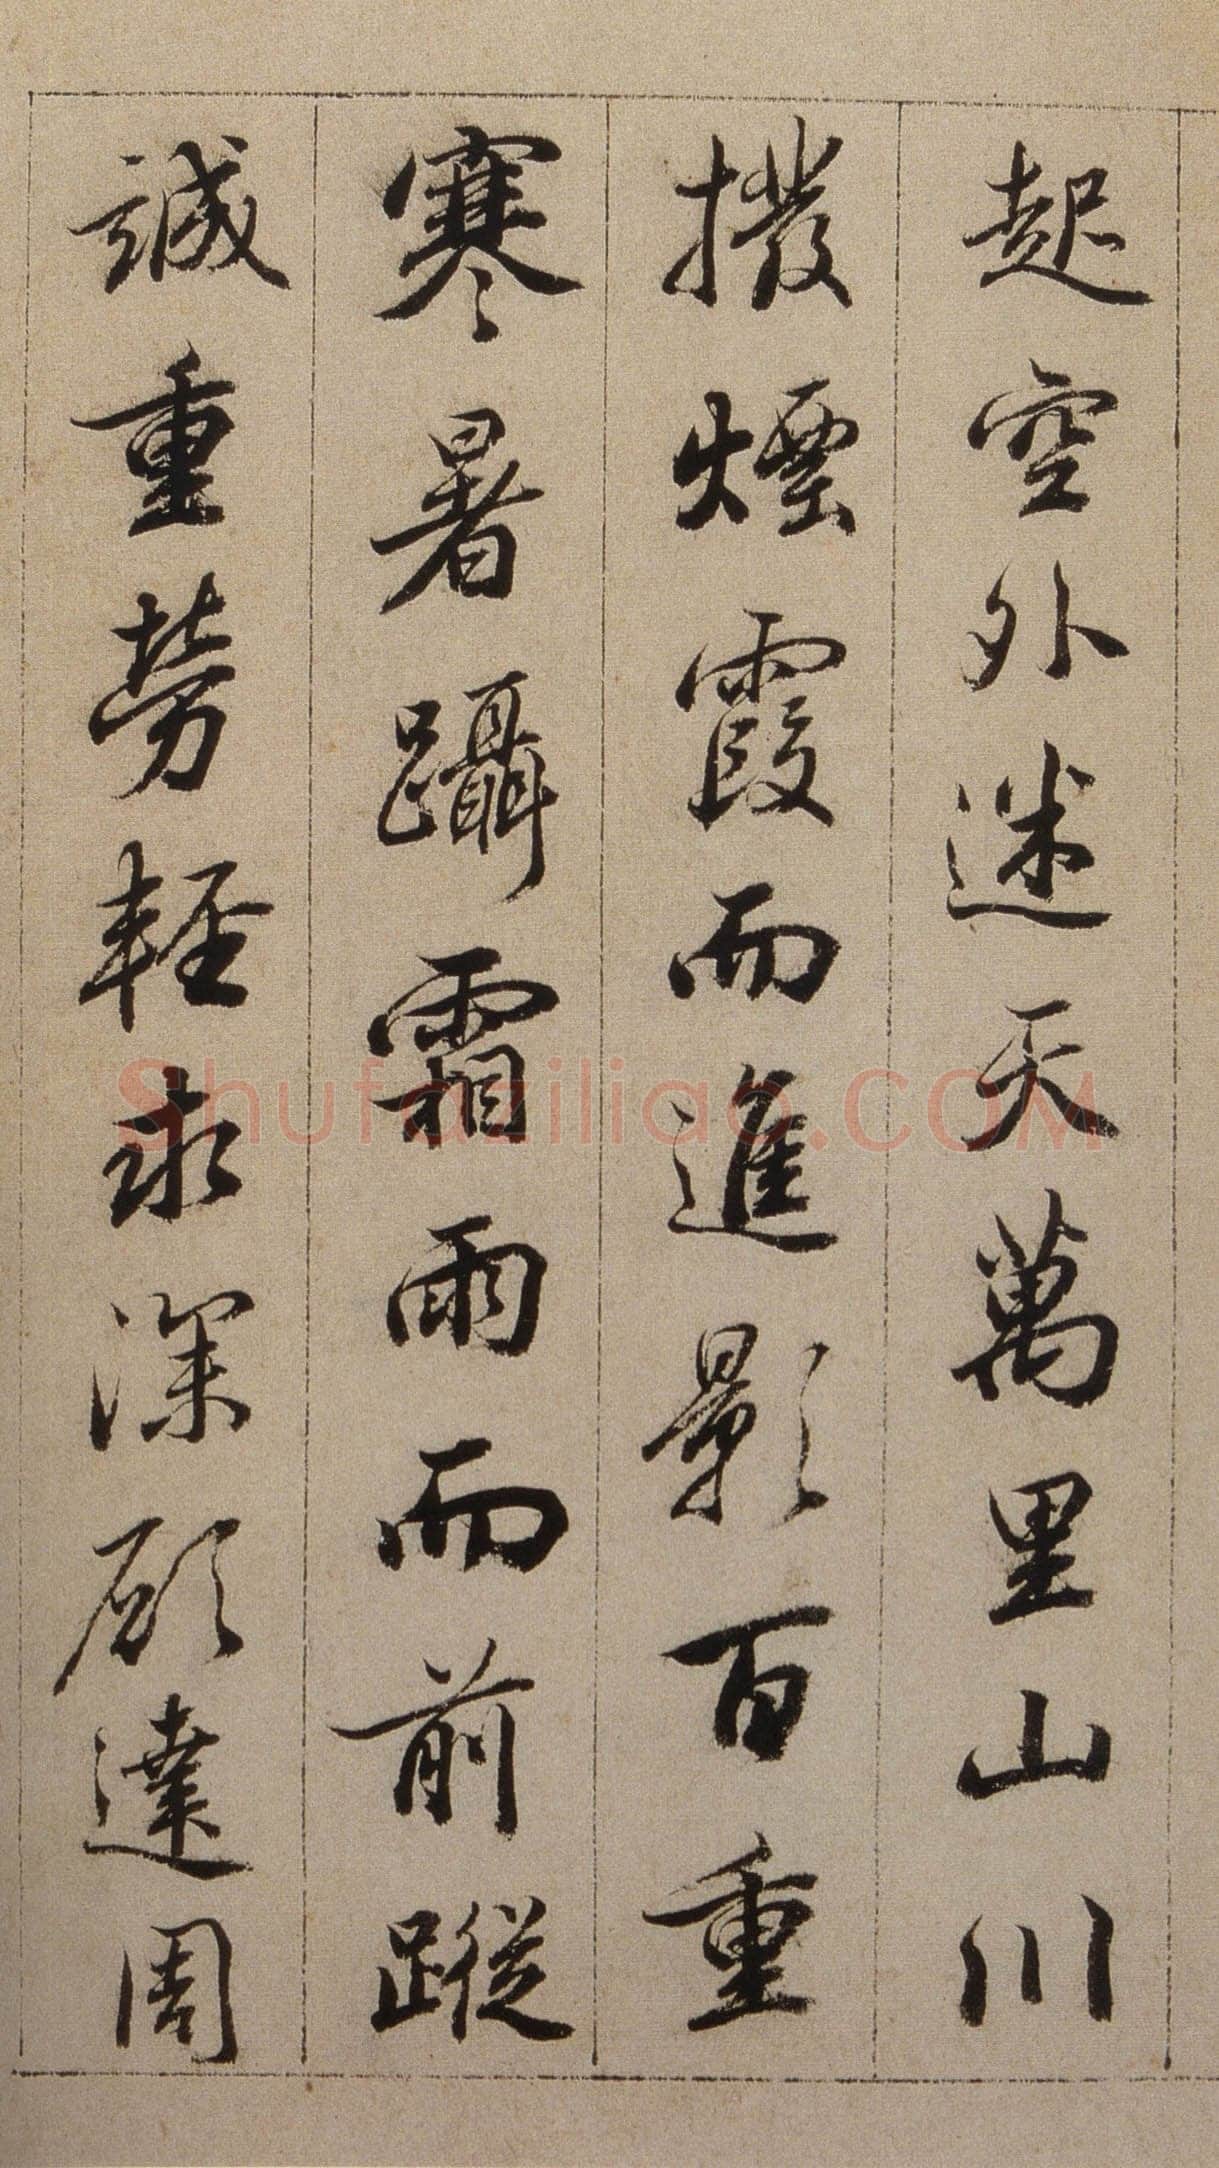 起空外迷天萬里山川
撥煙霞而進影百重
寒暑躡霜雨而前蹤
誠重勞輕求深願達周
Shufaziliao.COM